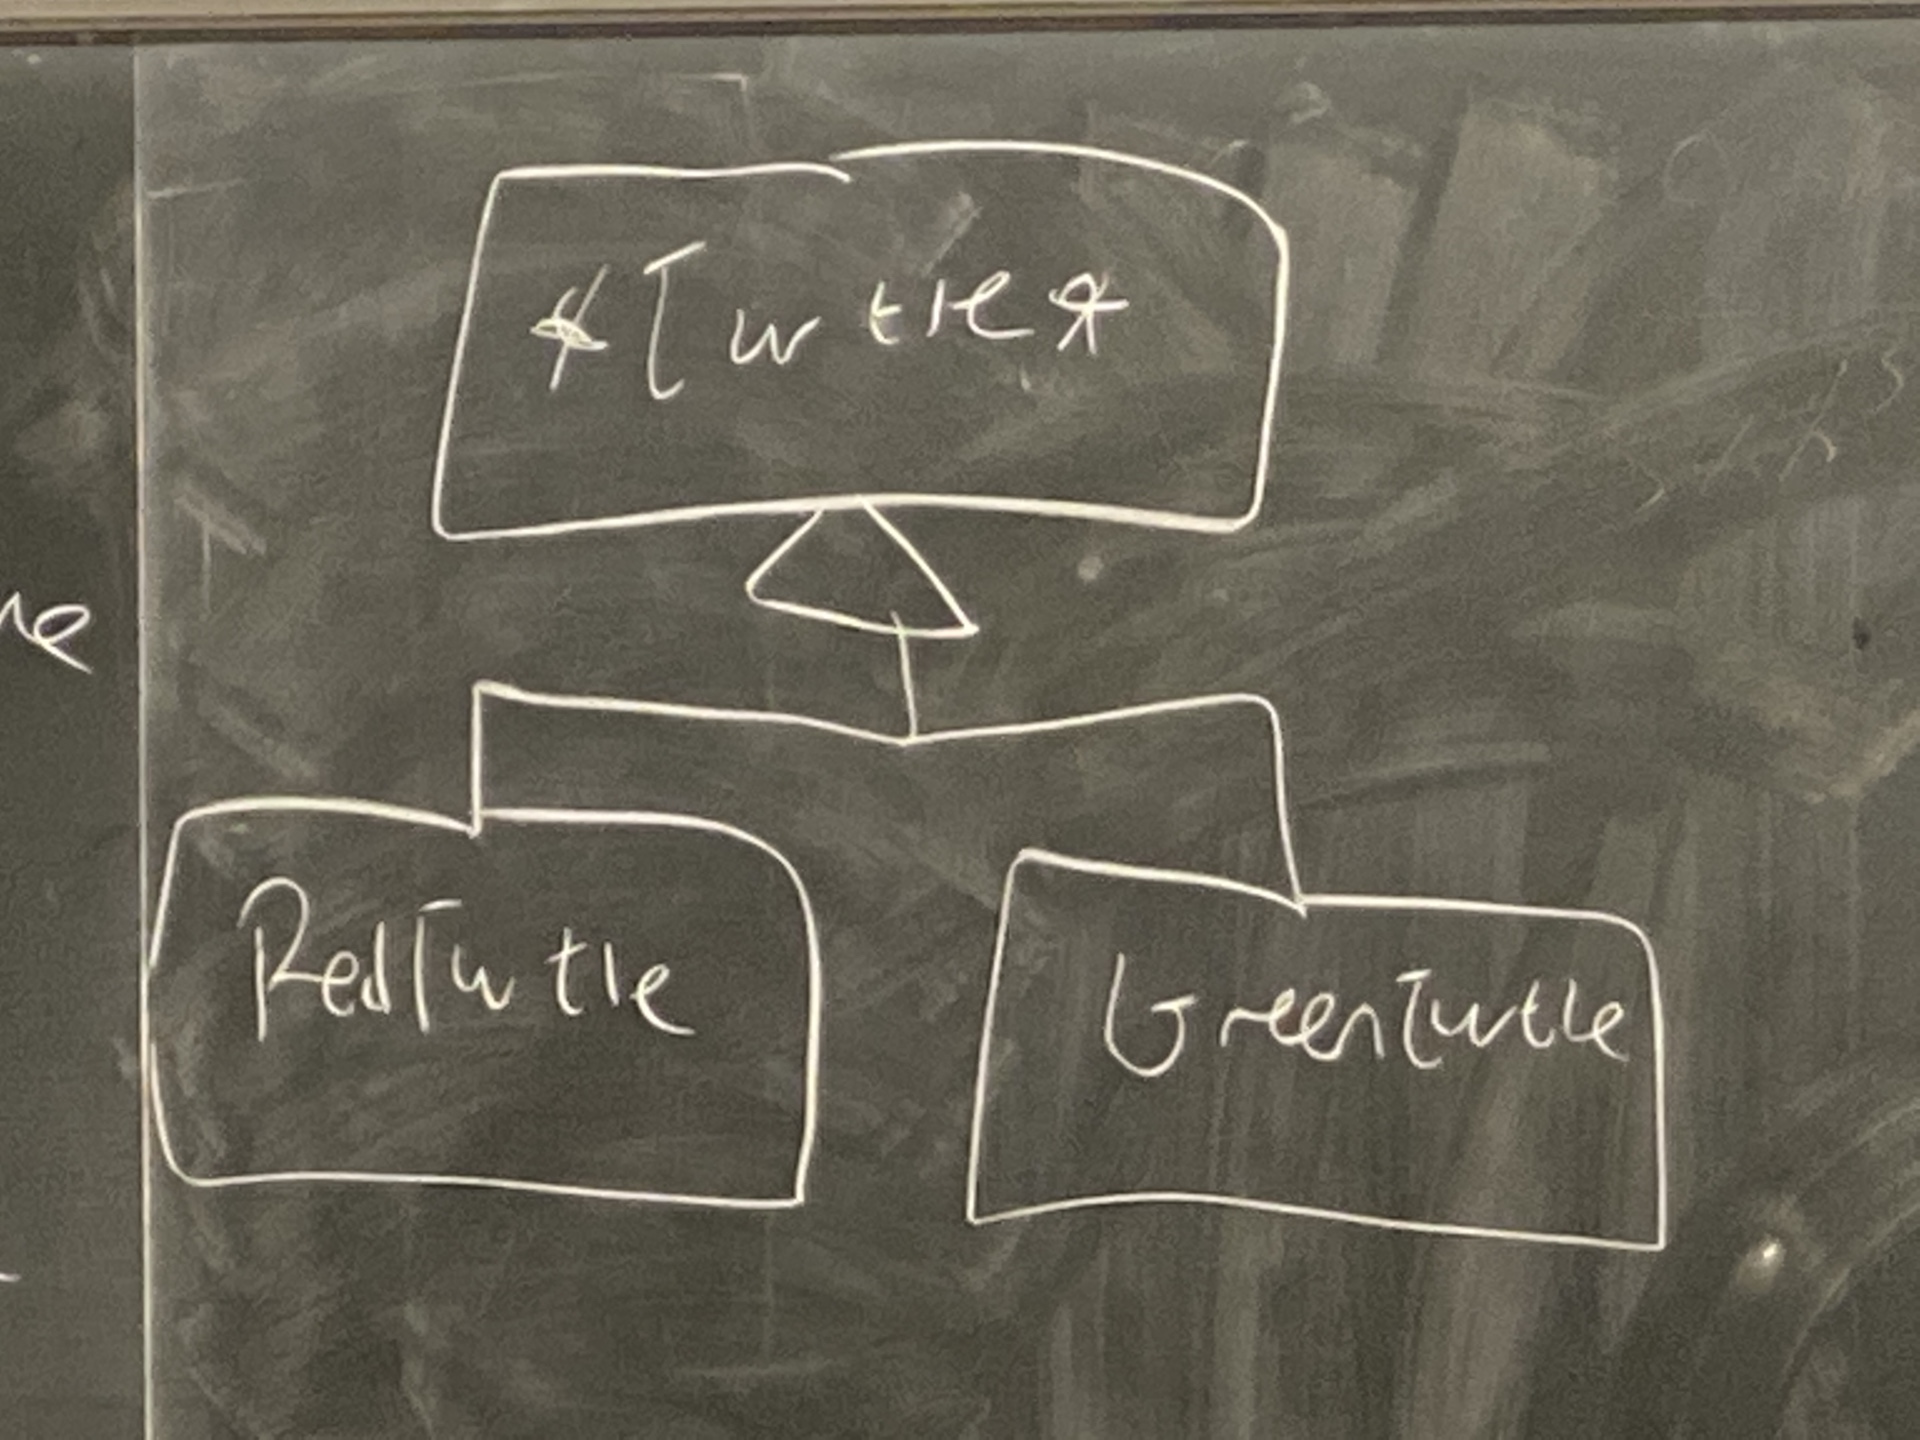 *Turtle*
RedTurtle
GreenTurtle